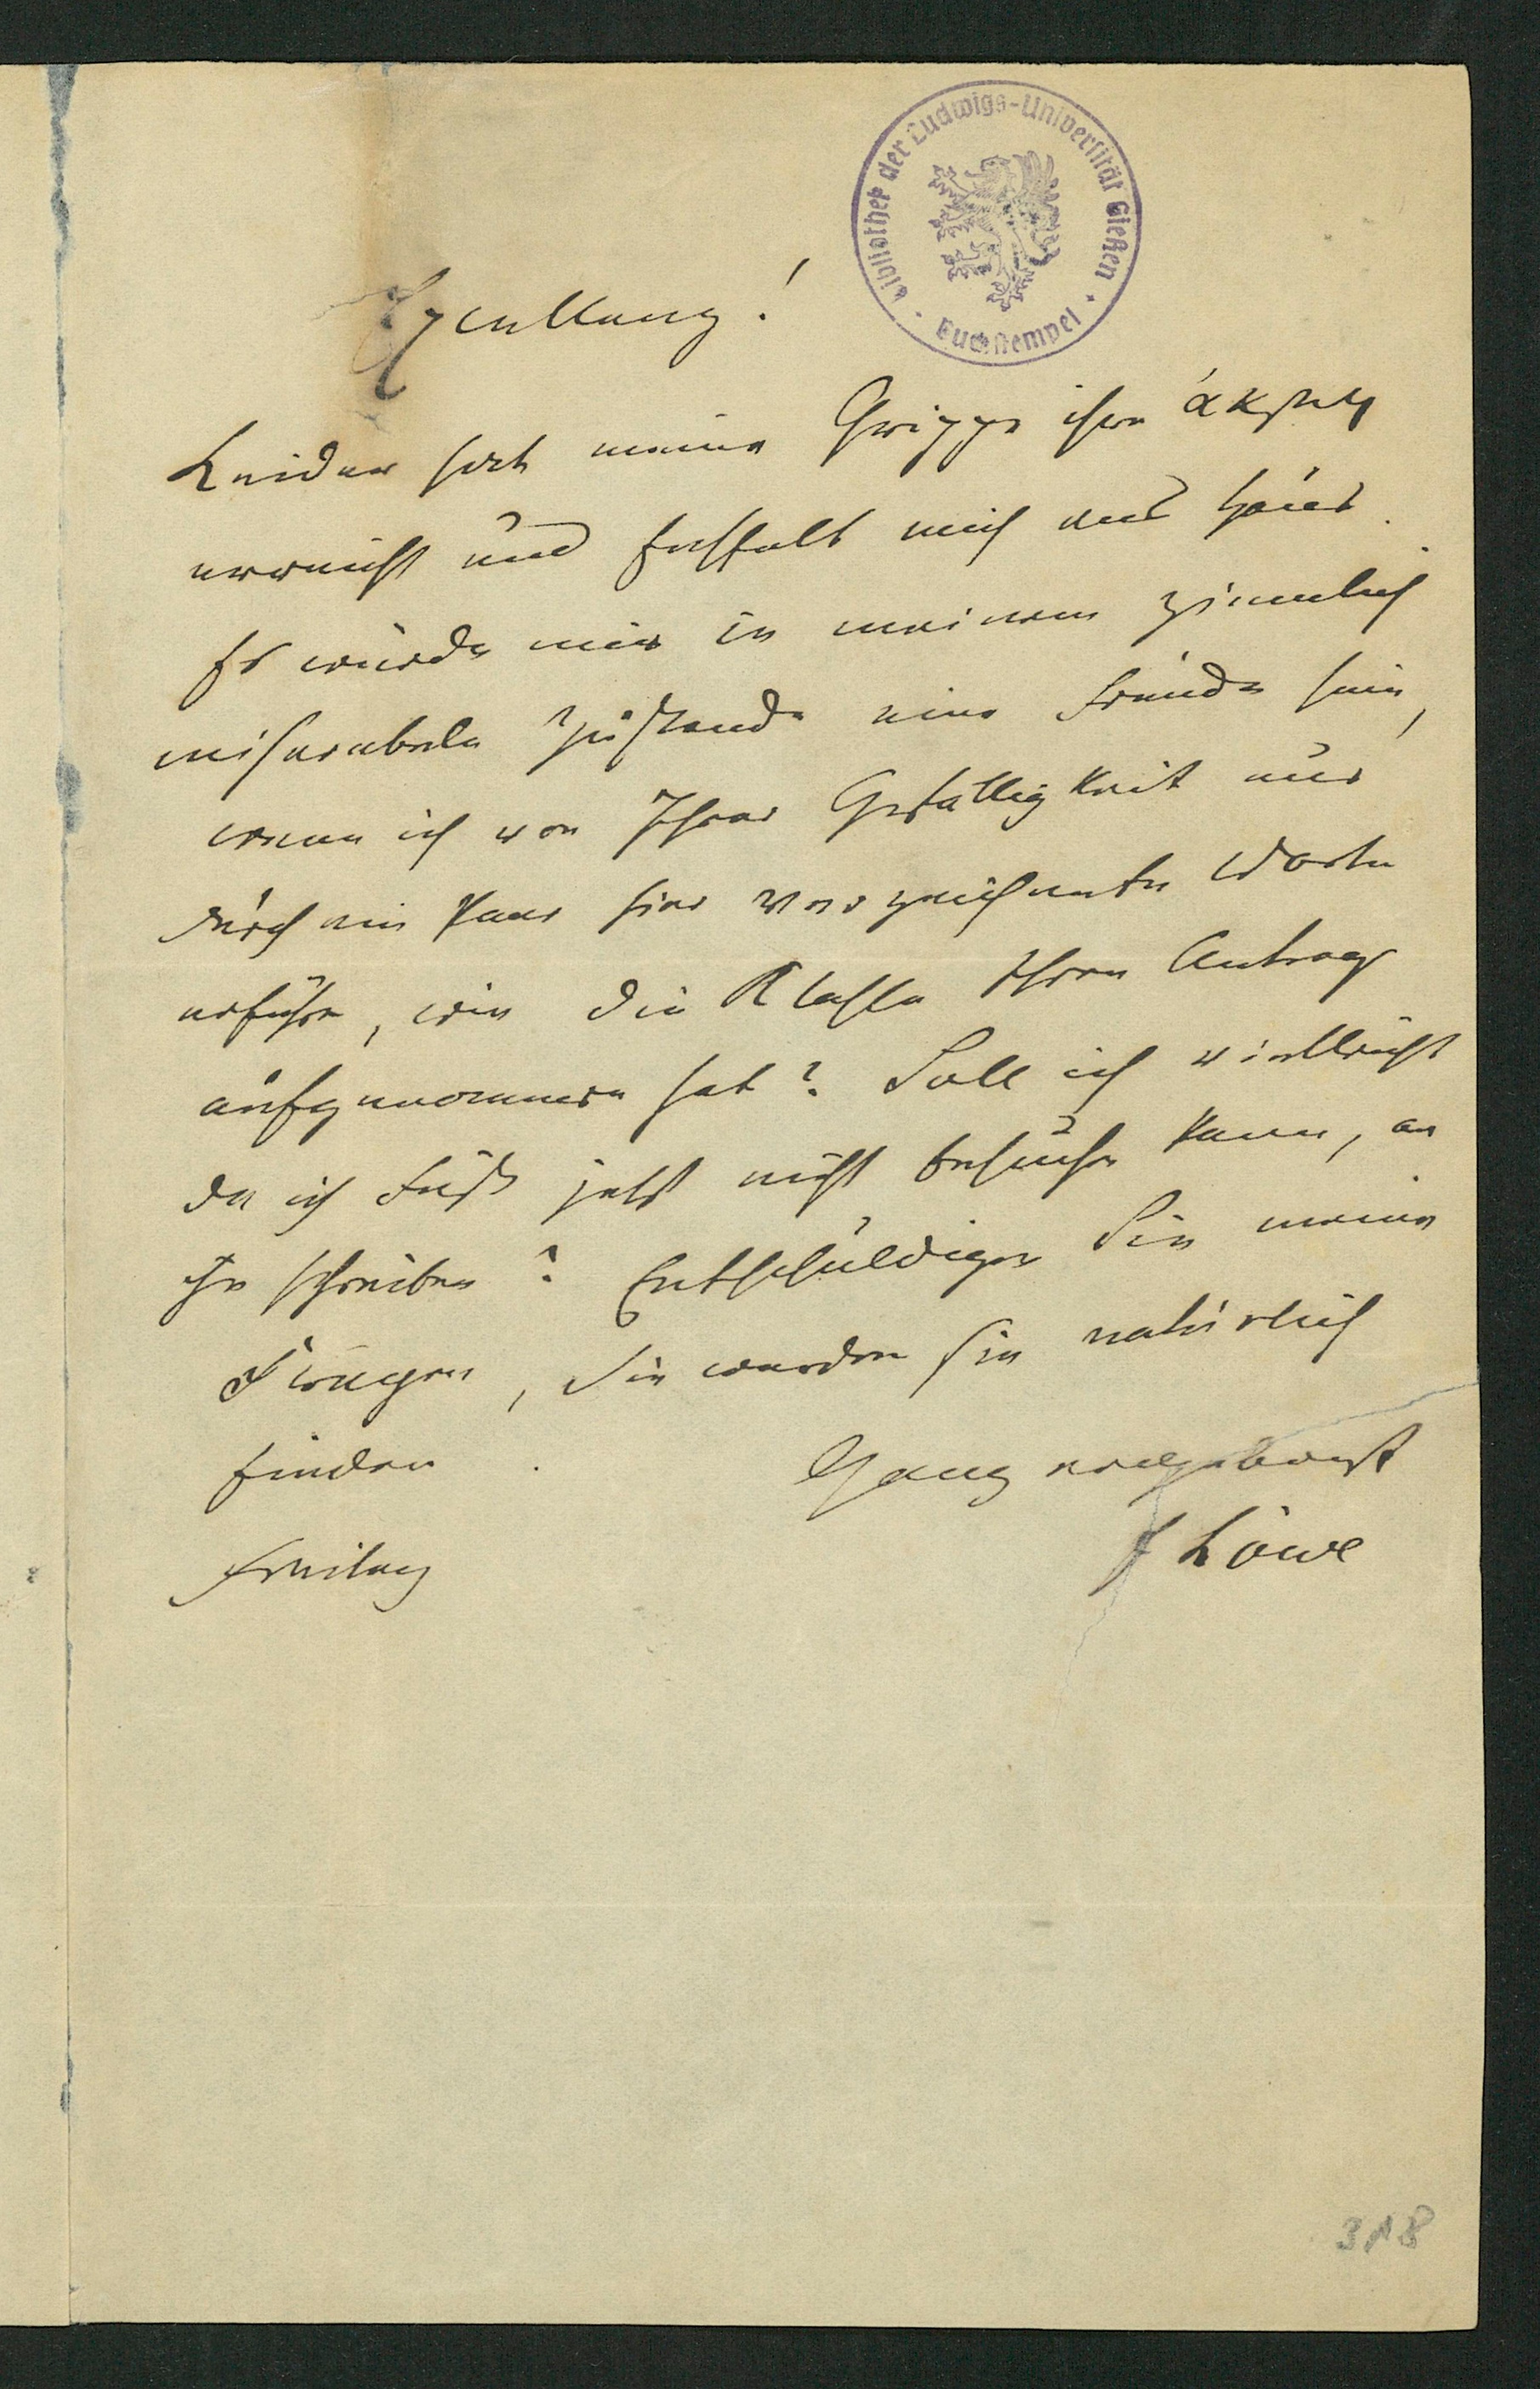 Bibliothek der Ludwigs-Universität Gießen
Buchstempel
Excellenz!
Leider hat meine Grippe ihre ἀκμὴ
erreicht und fesselt mich ans Haus.
Es würde mir in meinem ziemlich
miserabeln Zustande eine Freude sein,
wenn ich von Ihrer Gefälligkeit nur
durch ein Paar hier verzeichnete Worte
erführe, wie die Klasse Ihren Antrag
aufgenommen hat? Soll ich vielleicht
da ich jetzt nicht besuchen kann, an
ihn schreiben? Entschuldigen Sie meine
Fragen, Sie werden sie natürlich
finden.
Ganz ergebenst
J Löwe
Freitag
318